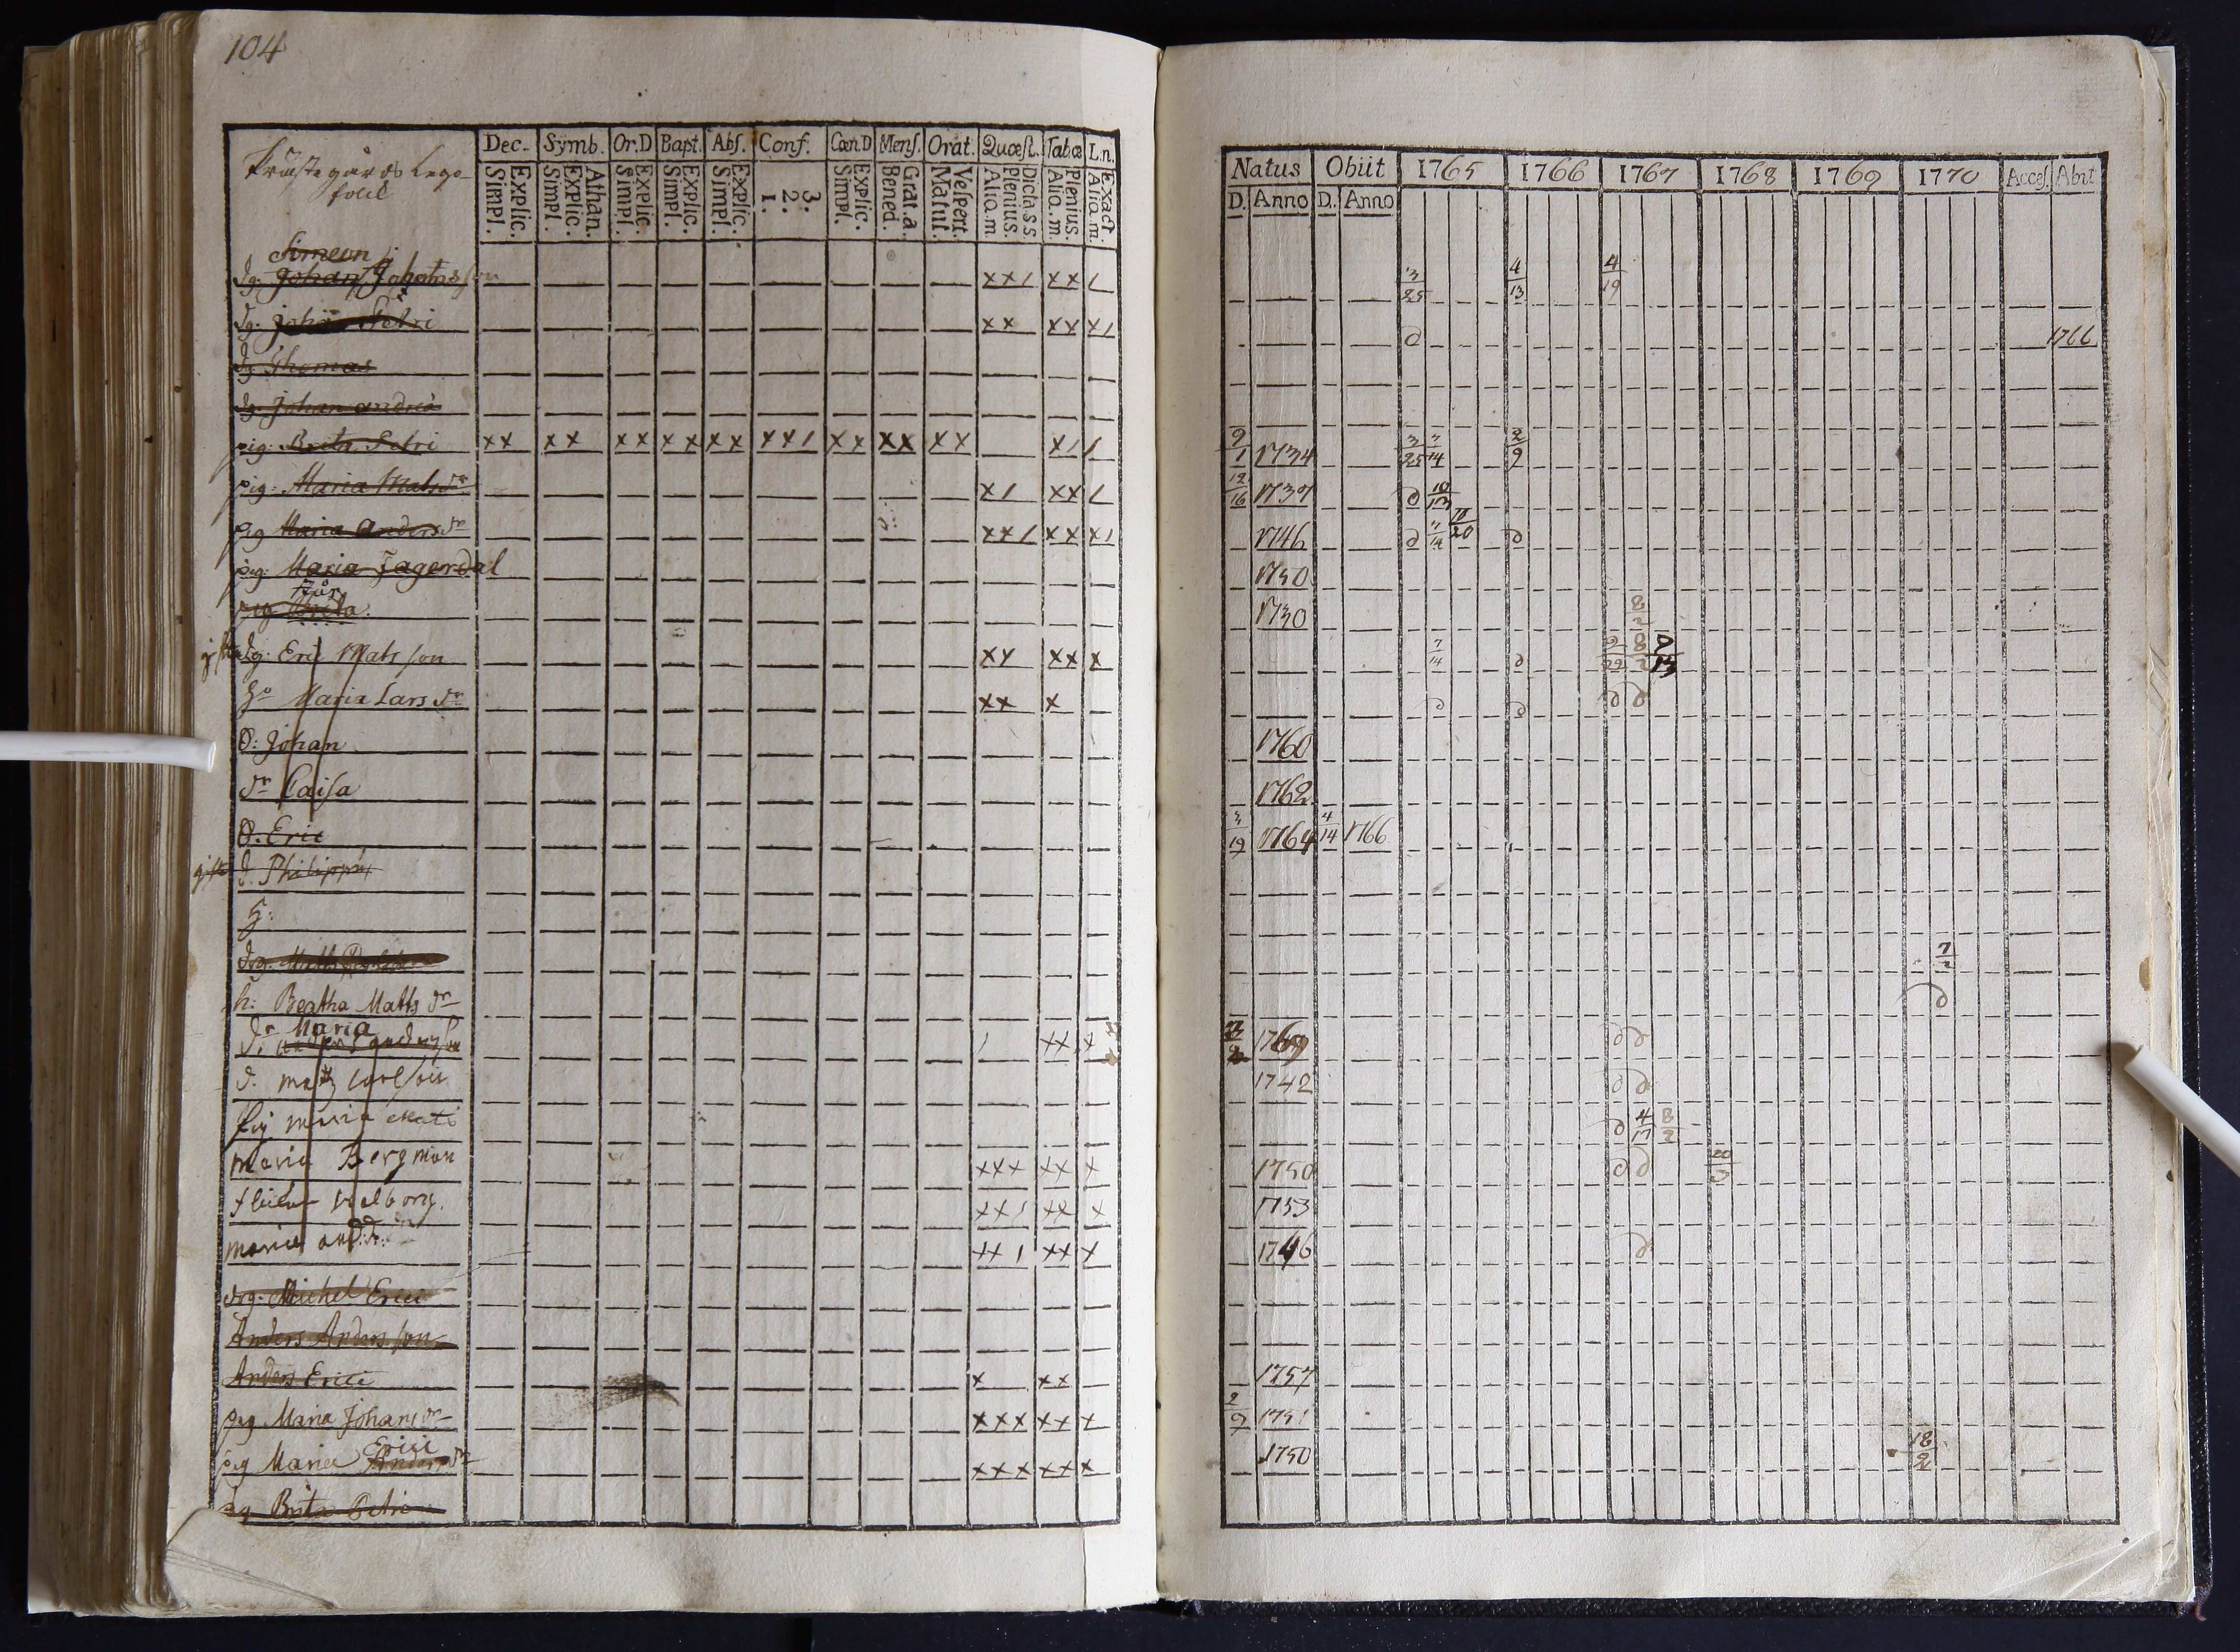 104
Prästegårds Lego-
folck
Dec. Symb. Or.D Bapt. Abs. Conf. Cœn.D Mens. Orat. Quæst. Tab.œ L.n.
Explic. Simpl. Athan. Explic. Simpl. Explic. Simpl. Explic. Simpl. Explic. Simpl. 3. 2. 1. Explic. Simpl. Grat.a. Bened. Vespert. Matut. Dicta s.s. Plenius. Aliq.m. Plenius. Aliq.m. Exact. Aliq.m.
Simeon
dg. Johan Johansson xx/ xx /
dg. Johan Petri xx xx x/
dg Thomas
dg. Johan andreæ
pig: Brita Petri xx xx xx xx xx xx/ xx xx xx x/ /
pig: Maria Mats dr x/ xx /
pig Maria Anders dr xx/ xx x/
pig: Maria Fagerdal
pig Brita
gift dg: Eric Matsson xx xx x
H: Maria Lars dr xx x
O: Johan
dr Caisa
O. Eric
gift d. Philippus
H:
drg. Matts
h: Beatha Matts dr
dr Maria
d. anders anderss / xx x
d. matz
pig maria Mats
maria Bergman xxx xx x
Walborg xx/ xx x
maria and:dr xx/ xx x
drg. Michel Erici
Anders Andersson
Anders Erici x xx
pig Maria Johans dr xxx xx x
Erici
pig Maria Anders dr xxx xx x
pig Brita Petri
Natus Obiit 1765 1766 1767 1768 1769 1770 Acces. Abiit
D. Anno D. Anno
3/25 4/13 4/19
1766
9/1 1734 3/25 7/14 2/9
12/16 1737 10/13
1746 7/14 10/20
1750
1730 8/2
7/14 9/29 8/2
1760
1762
3/19 1764 4/14 1766
7/2
1769
1742
4/17 8/2
1750 20/3
1753
1746
1757
2/9 1751
1750 18/2